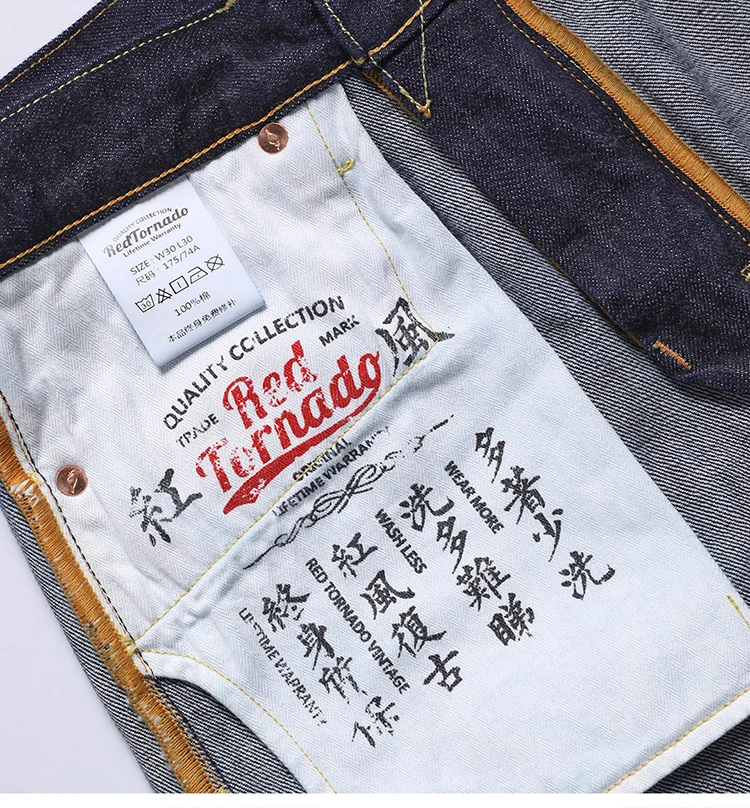 QUALITY COLLECTION
RedTornado
Lifetime Warranty
SIZE : W30 L30
尺码 : 175/74A
30
100%棉
本品终身免费修补
QUALITY COLLECTION
TRADE MARK
Red
Tornado
紅 風
ORIGINAL
LIFETIME WARRANTY
多著少洗
WEAR MORE
洗多難睇
WASH LESS
紅風復古
RED TORNADO VINTAGE
終身質保
LIFETIME WARRANTY